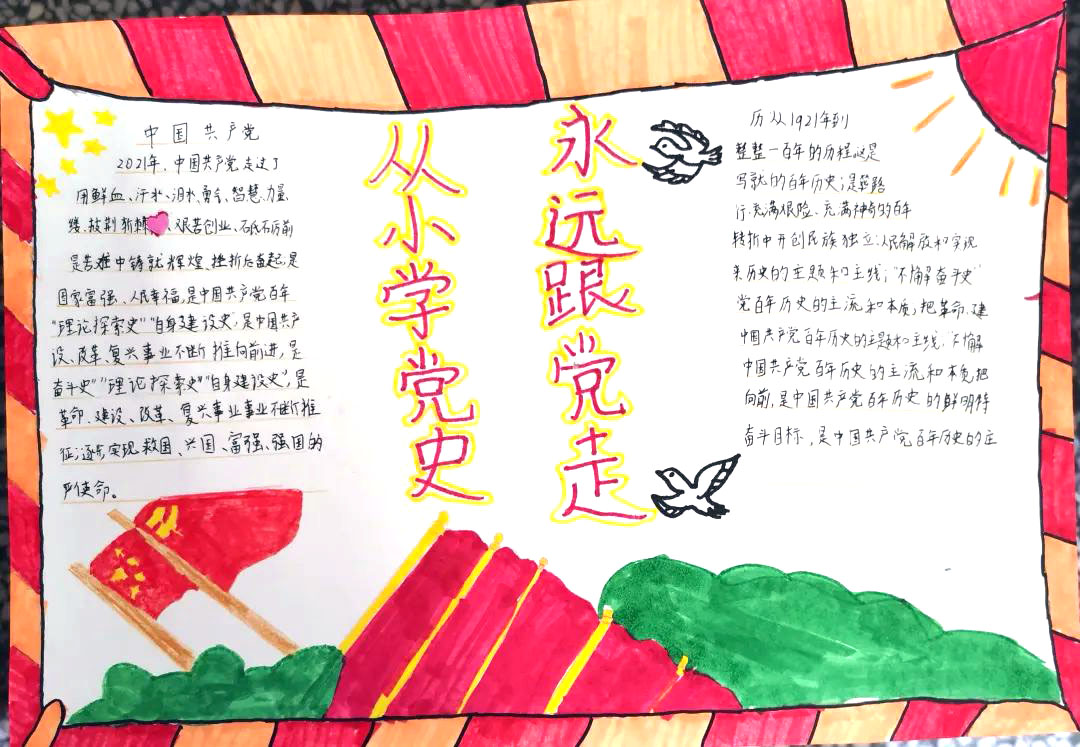 中国共产党
2021年、中国共产党走过了
用鲜血、汗水、泪水、勇气、智慧、力量
披荆斩棘、艰苦创业、砥砺前
是苦难中铸就辉煌、挫折后奋起，是
国家富强、人民幸福，是中国共产党百年
“理论探索史”“自身建设史；是中国共产
设、改革、复兴事业不断推向前进，是
奋斗史”“理论探索史”“自身建设史”，是
革命、建设、改革、复兴事业事业不断推
征；逐步实现救国、兴国、富强、强国的
严使命。
从小学党史
永远跟党走
历从1921年到
整整一百年的历程这是
写就的百年历史；是筚路
行、充满艰险、充满神奇的百年
转折中开创民族独立；人民解放和实现
来历史的主题和主线；“不懈奋斗史”
党百年历史的主流和本质；把革命、建
中国共产党百年历史的主题和主线、“不懈
中国共产党百年历史的主流和本质，把
向前，是中国共产党百年历史的鲜明特
奋斗目标，是中国共产党百年历史的庄